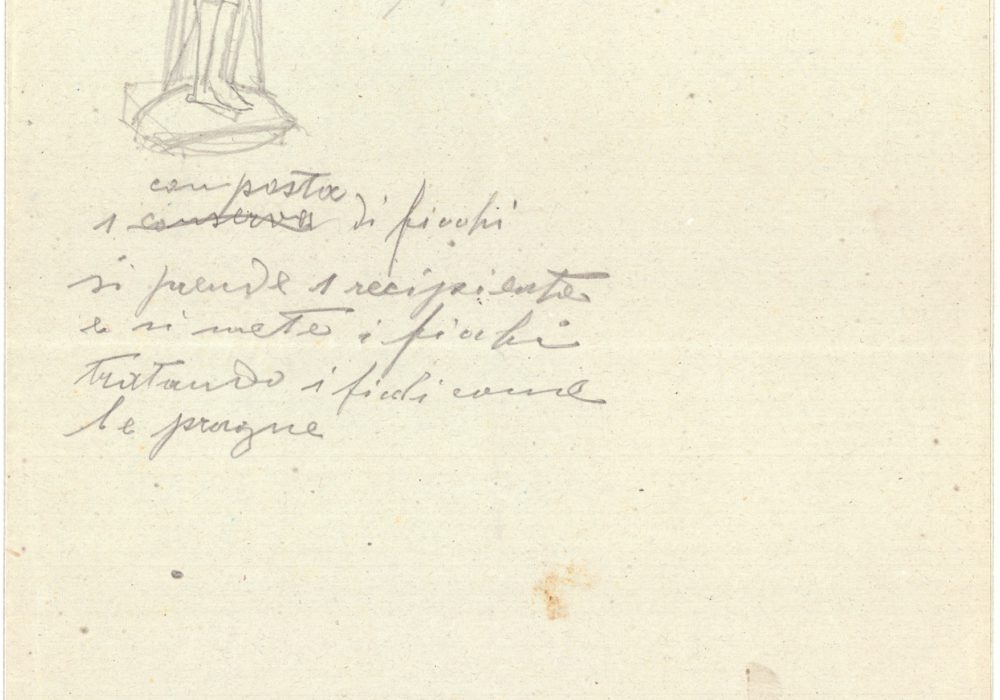 composta
1 conserva di fiochi
si prende 1 recipiente
e si mete i fichi
tratando i fichi come
le prugne